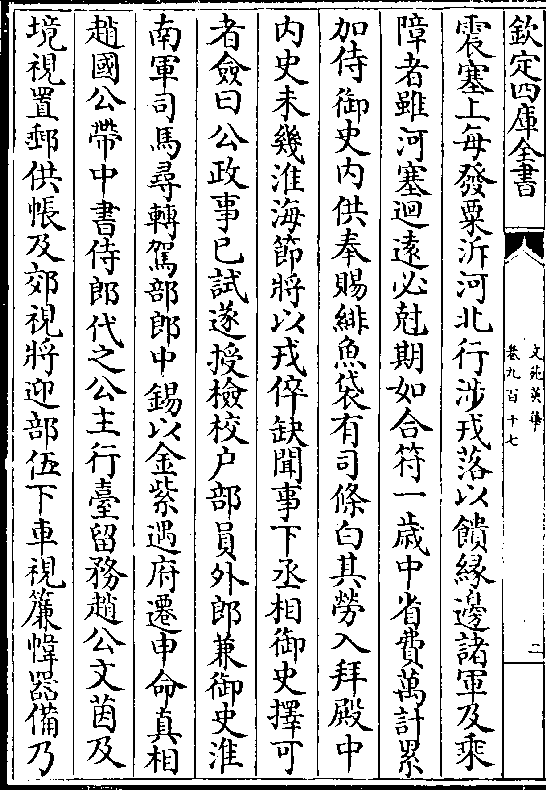 欽定四庫全書
文苑英華
卷九百十七
二
震塞上每發粟泝河北行涉戎落以饋緣邊諸軍及乘
障者雖河塞迴遠必尅期如合符一歲中省費萬計累
加侍御史内供奉賜緋魚袋有司條白其勞入拜殿中
内史未幾淮海節將以戎倅缺聞事下丞相御史擇可
者僉曰公政事已試遂授檢校户部員外郎兼御史淮
南軍司馬尋轉駕部郎中錫以金紫遇府遷申命真相
趙國公帶中書侍郎代之公主行臺留務趙公文茵及
境視置郵供帳及郊視將迎部伍下車視簾幃器備乃